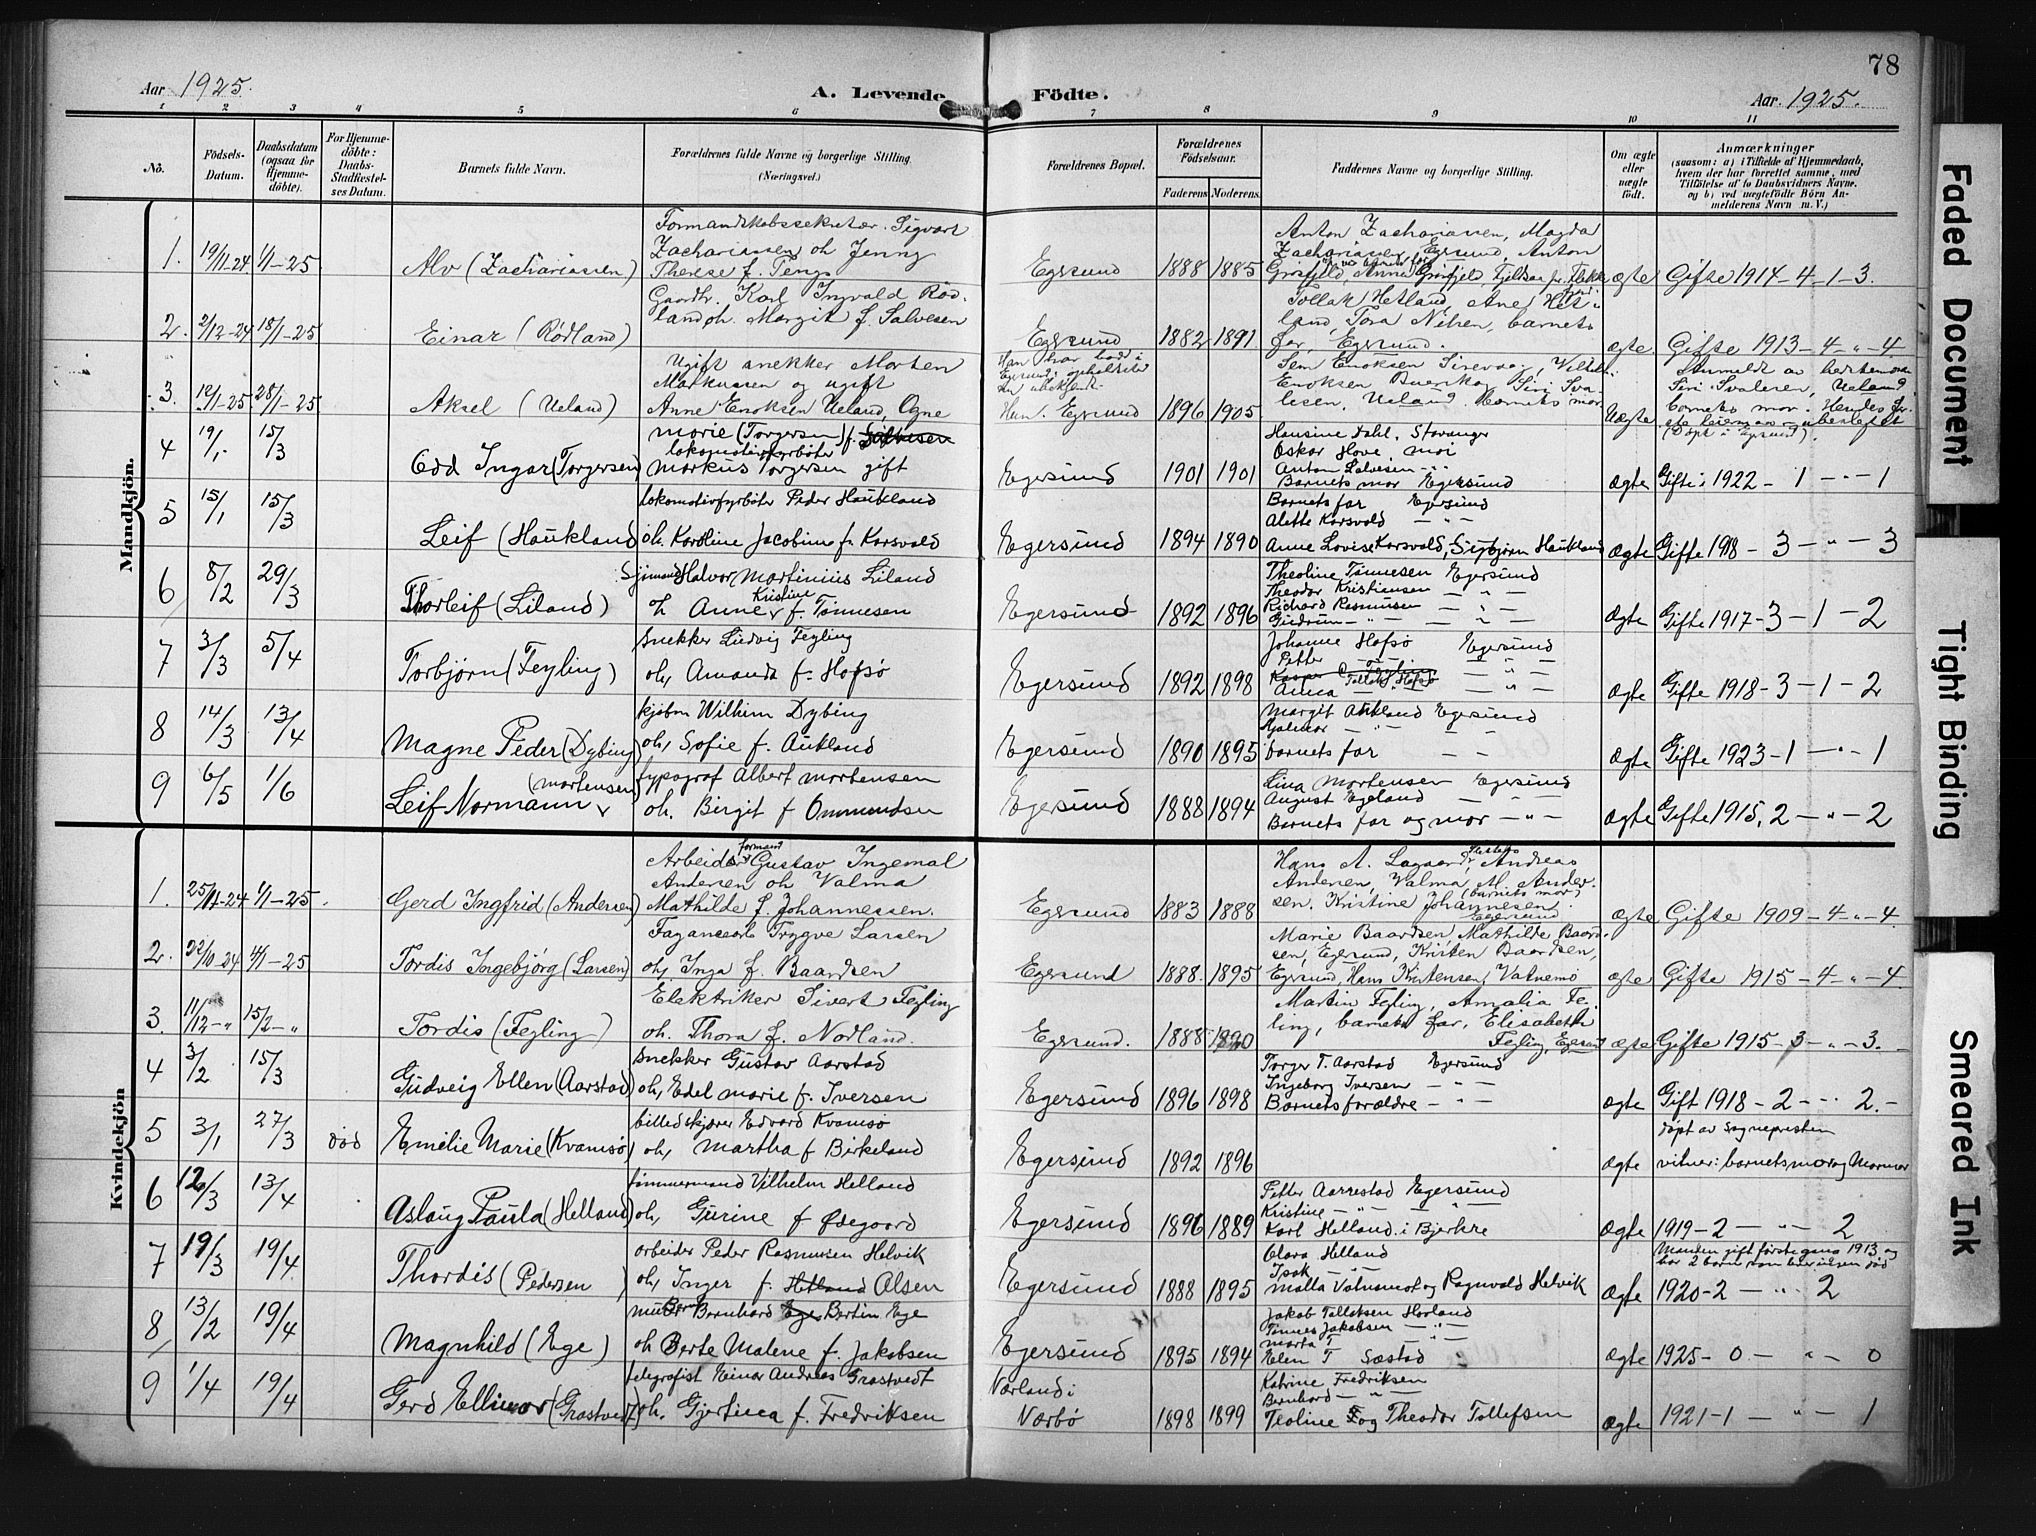 78
Aar 1925.
A. Levende Födte.
Aar. 1925.
1 2 3 4 5 6 7 8 9 10 11
No.
Födsels-Datum.
Daabsdatum (ogsaa for Hjemme-döbte).
For Hjemme-döbte: Daabs-Stadfæstel-ses Datum.
Barnets fulde Navn.
Forældrenes fulde Navne og borgerlige Stilling.
(Næringsvei.)
Forældrenes Bopæl.
Forældrenes Födselsaar.
Faderens Moderens
Faddernes Navne og borgerlige Stilling.
Om ægte eller uægte födt.
Anmærkninger
(saasom: a) i Tilfælde af Hjemmedaab,
hvem der har forrettet samme, med
Tilföielse af to Daabsvidners Navne.
og b) ved uægtefödte Börn An-
melderens Navn m. V.)
Mandkjön.
1. 19/11-24 1/1-25
Alv (Zachariassen)
Formandskabssekretær Sigvart
Zachariassen oh Jenny
Therese f. Tengs
Egersund 1888 1885
Anton Zachariassen, Magda
Zachariassen, Egersund, Anton
Grøsfjeld, Anna Grøsfjeld
ægte Gifte 1914-4-1-3.
2. 2/12-24 18/1-25
Einar (Rødland)
Gaardbr. Karl Ingvald Rød-
land oh. Margit f. Salvesen
Egersund 1882 1891
Tollak Hetland, Ane Het-
land, Tora Nilsen, barnets
far, Egersund.
ægte. Gifte 1913-4-"-4.
3. 12/1-25 28/1-25
Aksel (Ueland)
Ugift snekker Morten
Markussen og ugift
Anne Enoksen Ueland, Ogne
Han har bod i
Egersund, opholdsted
nu ubekjendt.
Hun: Egersund 1896 1905
Sem Enoksen Sirevaag, Vilhelm
Enoksen Buerskog, Siri Sva-
lesen, Ueland. Barnets mor
Uægte. Anmeldt av bedstemoren
Siri Svalesen, Ueland
barnets mor. Hendes før-
ste leiermaal
(Døpt i Egersund).
4 19/1 15/3
Odd Ingar (Torgersen)
Marie (Torgersen) f. Salvesen
lokomotivfyrbøter
Markus Torgersen gift
Egersund 1901 1901
Hansine Dahl, Stavanger
Oskar Hove, Moi
Anton Salvesen -"-
Barnets mor Egersund
ægte Gifte i 1922-1-"-1
5 15/1 15/3
Leif (Haukland)
lokomotivfyrbøter Peder Haukland
oh. Karoline Jacobine f. Karsvald
Egersund 1894 1890
Barnets far Egersund
Alette Karsvald -"-
Anne Lovise Karsvald, Sigbjørn Haukland
ægte Gifte 1918-3-"-3
6 8/2 29/3
Thorleif (Liland)
Sjømand Halvor Martinius Liland
oh Anne Kristine f. Tønnesen
Egersund 1892 1896
Theoline Tønnesen Egersund
Theodor Kristiansen -"-
Richard Rasmussen -"-
Gudrun -"- -"-
ægte Gifte 1917-3-1-2
7 3/3 5/4
Torbjørn (Feyling)
Snekker Ludvig Feyling
oh, Amanda f. Hofsø
Egersund 1892 1898
Johanne Hofsø Egersund
Petter -"- -"-
Kasper Feyling -"-
Anna Tollaks Hofsø -"-
ægte Gifte 1918-3-1-2
8 14/3 13/4
Magne Peder (Dybing)
kjøbm Wilhelm Dybing
oh, Sofie f. Aukland
Egersund 1890 1895
Margit Aukland Egersund
Hjalmar -"-
barnets far
ægte Gifte 1923-1-"-1
9 6/5 1/6
Leif Normann (Mortensen)
typograf Albert Mortensen
oh. Birgit f Ommundsen
Egersund 1888 1894
Lina Mortensen Egersund
August Egeland -"-
Barnets far og mor -"-
ægte Gifte 1915, 2-"-2
Kvindekjön
1. 25/11-24 1/1-25
Gerd Ingfrid (Andersen)
Arbeidsformand Gustav Ingemal
Andersen oh Valma
Mathilde f. Johannessen.
Egersund 1883 1888
Hans A. Lagaard, Andreas
Andersen, Valma M. Ander-
sen (barnets mor), Kristine Johannesen.
Egersund
ægte Gifte 1909-4-"-4.
2. 22/10-24 4/1-25
Tordis Ingebjørg (Larsen)
Trygve Larsen
oh, Inga f. Baardsen
Egersund 1888. 1895
Marie Baardsen, Mathilde Baard-
sen, Egersund, Kristen Baardsen,
Egersund, Hans Kristensen, Vatnemo
ægte Gifte 1915-4-"-4.
3. 11/12-" 15/2-"
Tordis (Fegling)
Elektriker Sivert Fegling
oh. Thora f. Nodland.
Egersund. 1888 1890
Martin Fegling, Amalia Feg-
ling, barnets far, Elisabeth
Fegling, Egersund
ægte Gifte 1915-3-"-3.
4 3/2 15/3
Gudveig Ellen (Aarstad)
Snekker Gustav Aarstad
oh, Edel Marie f. Iversen
Egersund 1896 1898
Torger T. Aarstad Egersund
Ingeborg Iversen -"-
Barnets forældre -"-
ægte Gift 1918-2-"-2.-
5 3/1 27/3 død
Emelie Marie (Kvamsø)
billedskjærer Edvard Kvamsø
oh, Martha f Birkeland
Egersund 1892 1896
ægte døpt av sognepresten
vitner: barnets mor og Mormor
6 12/3 13/4
Aslaug Paula (Helland)
tømmermand Vilhelm Helland
oh, Gurine f Ødegaard
Egersund 1896 1889
Petter Aarrestad Egersund
Kristine -"- -"-
Karl Helland i Bjerkre
ægte 1919-2-"-2
7 19/3 19/4.
Thordis (Pedersen)
arbeider Peder Rasmussen Helvik
oh, Inger f. Hetland Alsen
Egersund 1888 1895
Clara Helland
Isak -"-
Malla Vatnemot og Ragnvald Helvik
ægte Manden gift første gang 1913 og
har 2 barn
1920-2-"-2
8 13/2 19/4
Magnhild (Ege)
murer Bernhard Ege Bertin Ege
oh Berte Malene f. Jakobsen
Egersund 1895 1894
Jakob Tollefsen Havland
Tønnes Jakobsen -"-
Marta T
Elen T Sæstad
ægte 1925-0-"-0
9 1/4 19/4
Gerd Ellinor (Grastvedt)
telegrafist Einar Andreas Grastvedt
oh. Gjertina f. Fredriksen
Nærland i
Nærbø 1898 1899
Katrine Fredriksen
Bernhard -"-
Teoline F og Theodor Tollefsen
ægte 1921-1-"-1
Faded Document
Tight Binding
Smeared Ink